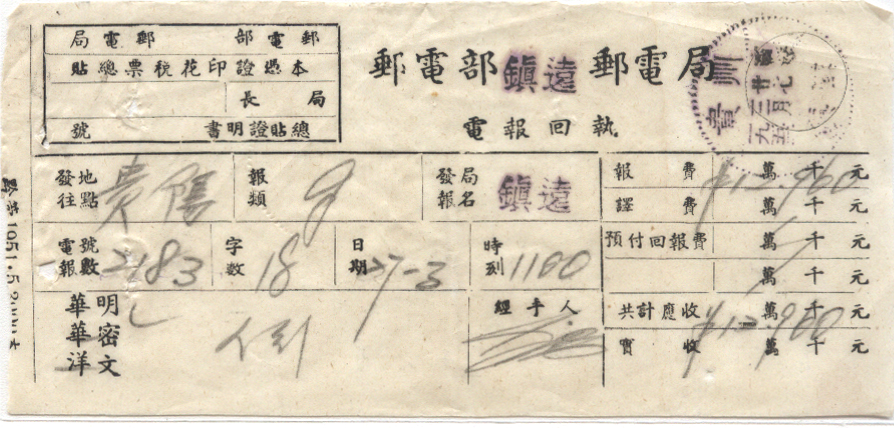 郵電部 郵電局
本憑證印花稅票總貼
局長
總貼證明書 號
郵電部鎮遠郵電局
電報回執
貴州
發往地點 貴陽 報類 發報局名 鎮遠
電報號數 2183 字數 18 日期 27-3 時刻 1100
華明
華密
洋文
經手人
報費 萬千元 ¥12,960
譯費 萬千元
預付回報費 萬千元
萬千元
共計應收 萬千元 ¥12,960
實收 萬千元